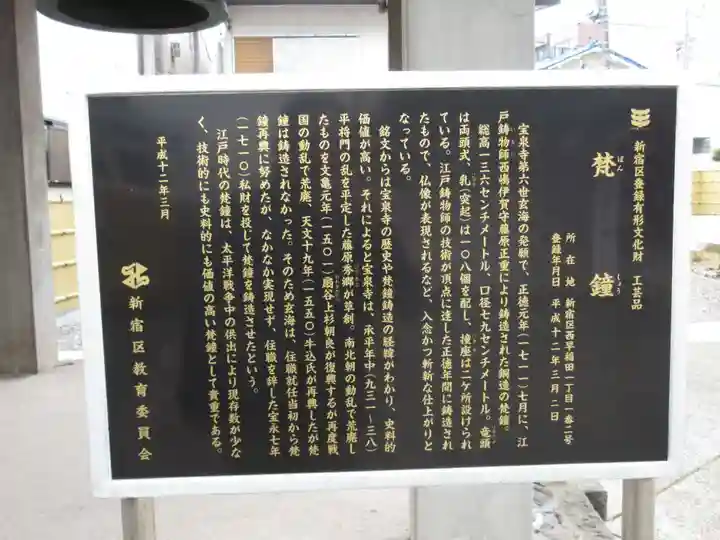 新宿区登録有形文化財　工芸品
梵鐘
ぼん　しょう
所在地　新宿区西早稲田一丁目一番二号
登録年月日　平成十二年三月二日
宝泉寺第六世玄海の発願で、正徳元年（一七一一）七月に、江
戸鋳物師西嶋伊賀守藤原正重により鋳造された銅造の梵鐘。
総高一三六センチメートル、口径七九センチメートル。竜頭
は両頭式、乳（突起）は一〇八個を配し、撞座は二ケ所設けられ
ている。江戸鋳物師の技術が頂点に達した正徳年間に鋳造され
たもので、仏像が表現されるなど、入念かつ斬新な仕上がりと
なっている。
銘文からは宝泉寺の歴史や梵鐘鋳造の経緯がわかり、史料的
価値が高い。それによると宝泉寺は、承平年中（九三一～三八）
平将門の乱を平定した藤原秀郷が草創。南北朝の動乱で荒廃し
たものを文亀元年（一五〇一）扇谷上杉朝良が復興するが再度戦
国の動乱で荒廃、天文十九年（一五五〇）牛込氏が再興したが梵
鐘は鋳造されなかった。そのため玄海は、住職就任当初から梵
鐘再興に努めたが、なかなか実現せず、住職を辞した宝永七年
（一七一〇）私財を投して梵鐘を鋳造させたという。
江戸時代の梵鐘は、太平洋戦争中の供出により現存数が少な
く、技術的にも史料的にも価値の高い梵鐘として貴重である。
平成十二年三月
新宿区教育委員会